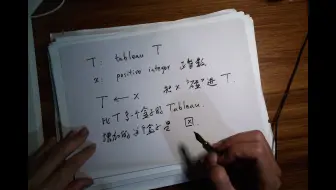 T: tableau T
x: positive integer 正整数
T ← x 把x"碰"进T.
比T多一个盒子的Tableau.
增加的这个盒子是 ☒.